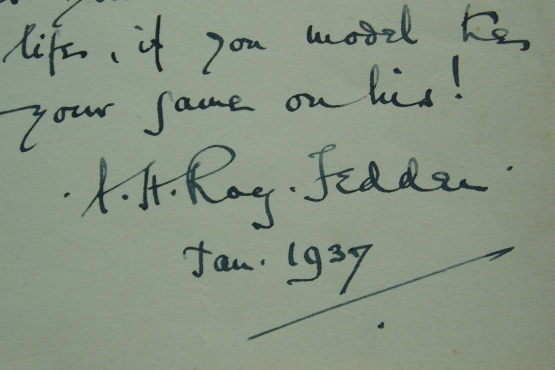 life, if you model
your game on his!
A.H. Roy. Fedden.
Jan. 1937